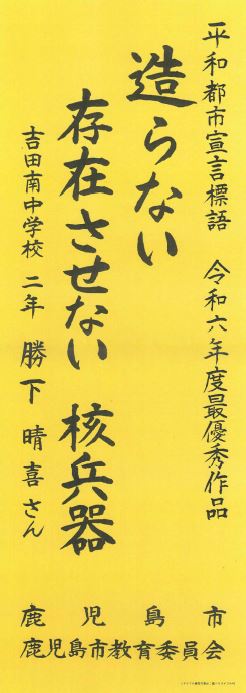 平和都市宣言標語　令和六年度最優秀作品
造らない
存在させない　核兵器
吉田南中学校　二年　勝下　晴喜さん
鹿児島市
鹿児島市教育委員会